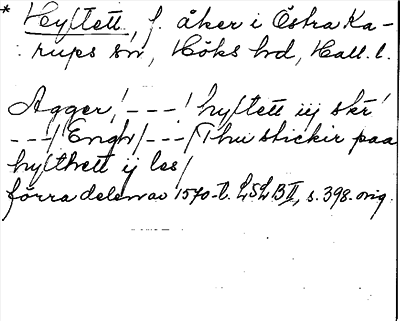 * Hyftett, f. åker i Östra Ka-
rups sn, Höks hd, Hall. l.
Agger / - - - / hyftett iij skr /
- - - / Engh / - - - / Thu stickir paa
hyfthett ij les /
förra delen av 1570-t. LSLB II, s. 398. orig.